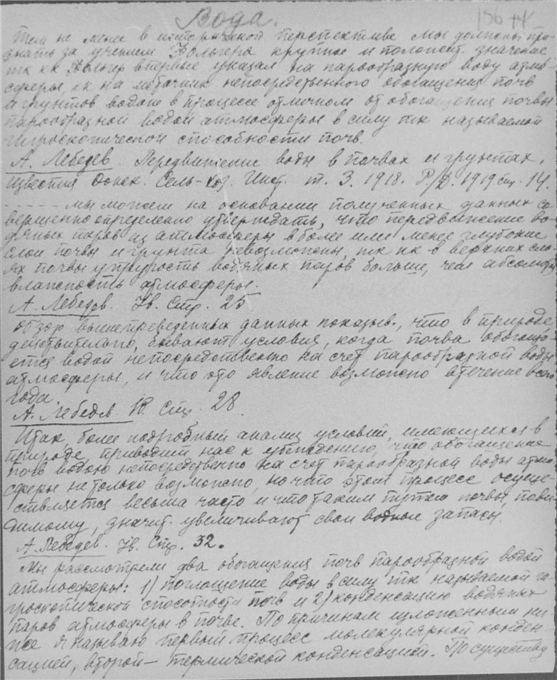 Вода.
Тем не менее в исторической перспективе мы должны при-
знать за учением Фольгера крупное и положит. значение
тк кк Фольгер впервые указал на парообразную воду атмо-
сферы, кк на источник непосредственного обогащения почв
и грунтов водою в процессе отличном от обогащения почвы
парообразной водой атмосферы в силу тк называемой
гигроскопической способности почв.
А. Лебедев. Передвижение воды в почвах и грунтах.
Известия Донск. Сель-хоз. Инст. т. 3. 1918. Р/Д. 1919 стр. 14
мы можем на основании полученных данных со-
вершенно определенно утверждать, что передвижение во-
дяных паров из атмосферы в более или менее глубокие
слои почвы и грунта невозможны, тк кк в верхних сло-
ях почвы упругость водяных паров больше, чем абсолют.
влажность атмосферы.
А. Лебедев. Ib. Стр. 25
Обзор вышеприведенных данных показыв., что в природе
действительно, бывают условия, когда почва обогаща-
ется водой непосредственно на счет парообразной воды
атмосферы, и что это явление возможно втечение всего
года.
А. Лебедев Ib. Стр. 28.
Итак, более подробный анализ условий, имеющихся в
природе, приводит нас к убеждению, что обогащение
почв водою непосредственно на счет парообразной воды атмо-
сферы не только возможно, но что этот процесс осуще-
ствляется весьма часто и что таким путем почвы, пови-
димому, значит увеличивают свои водные запасы.
А. Лебедев. Ib. Стр. 32.
Мы рассмотрели два обогащения почв парообразной водой
атмосферы: 1) поглощение воды в силу тк называемой ги-
гроскопической способности почв и 2) конденсацию водяных
паров атмосферы в почве. По причинам изложенным ни-
же я называю первый процесс молекулярной конден-
сацией, второй — термической конденсацией. По существу